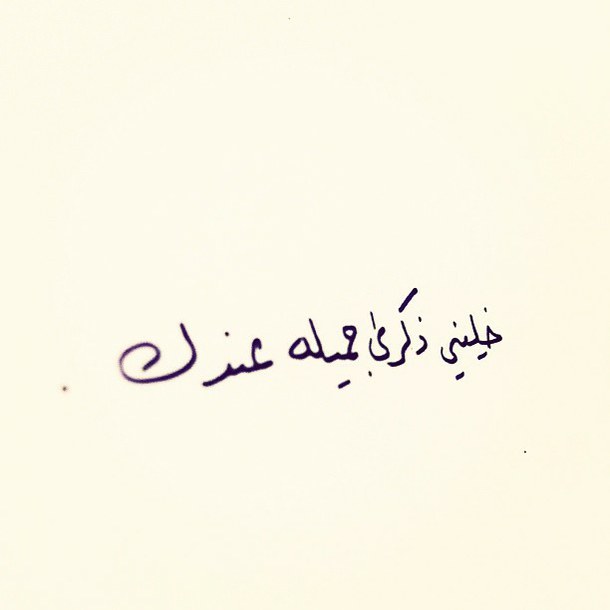 خليني ذكرى جميله عندك